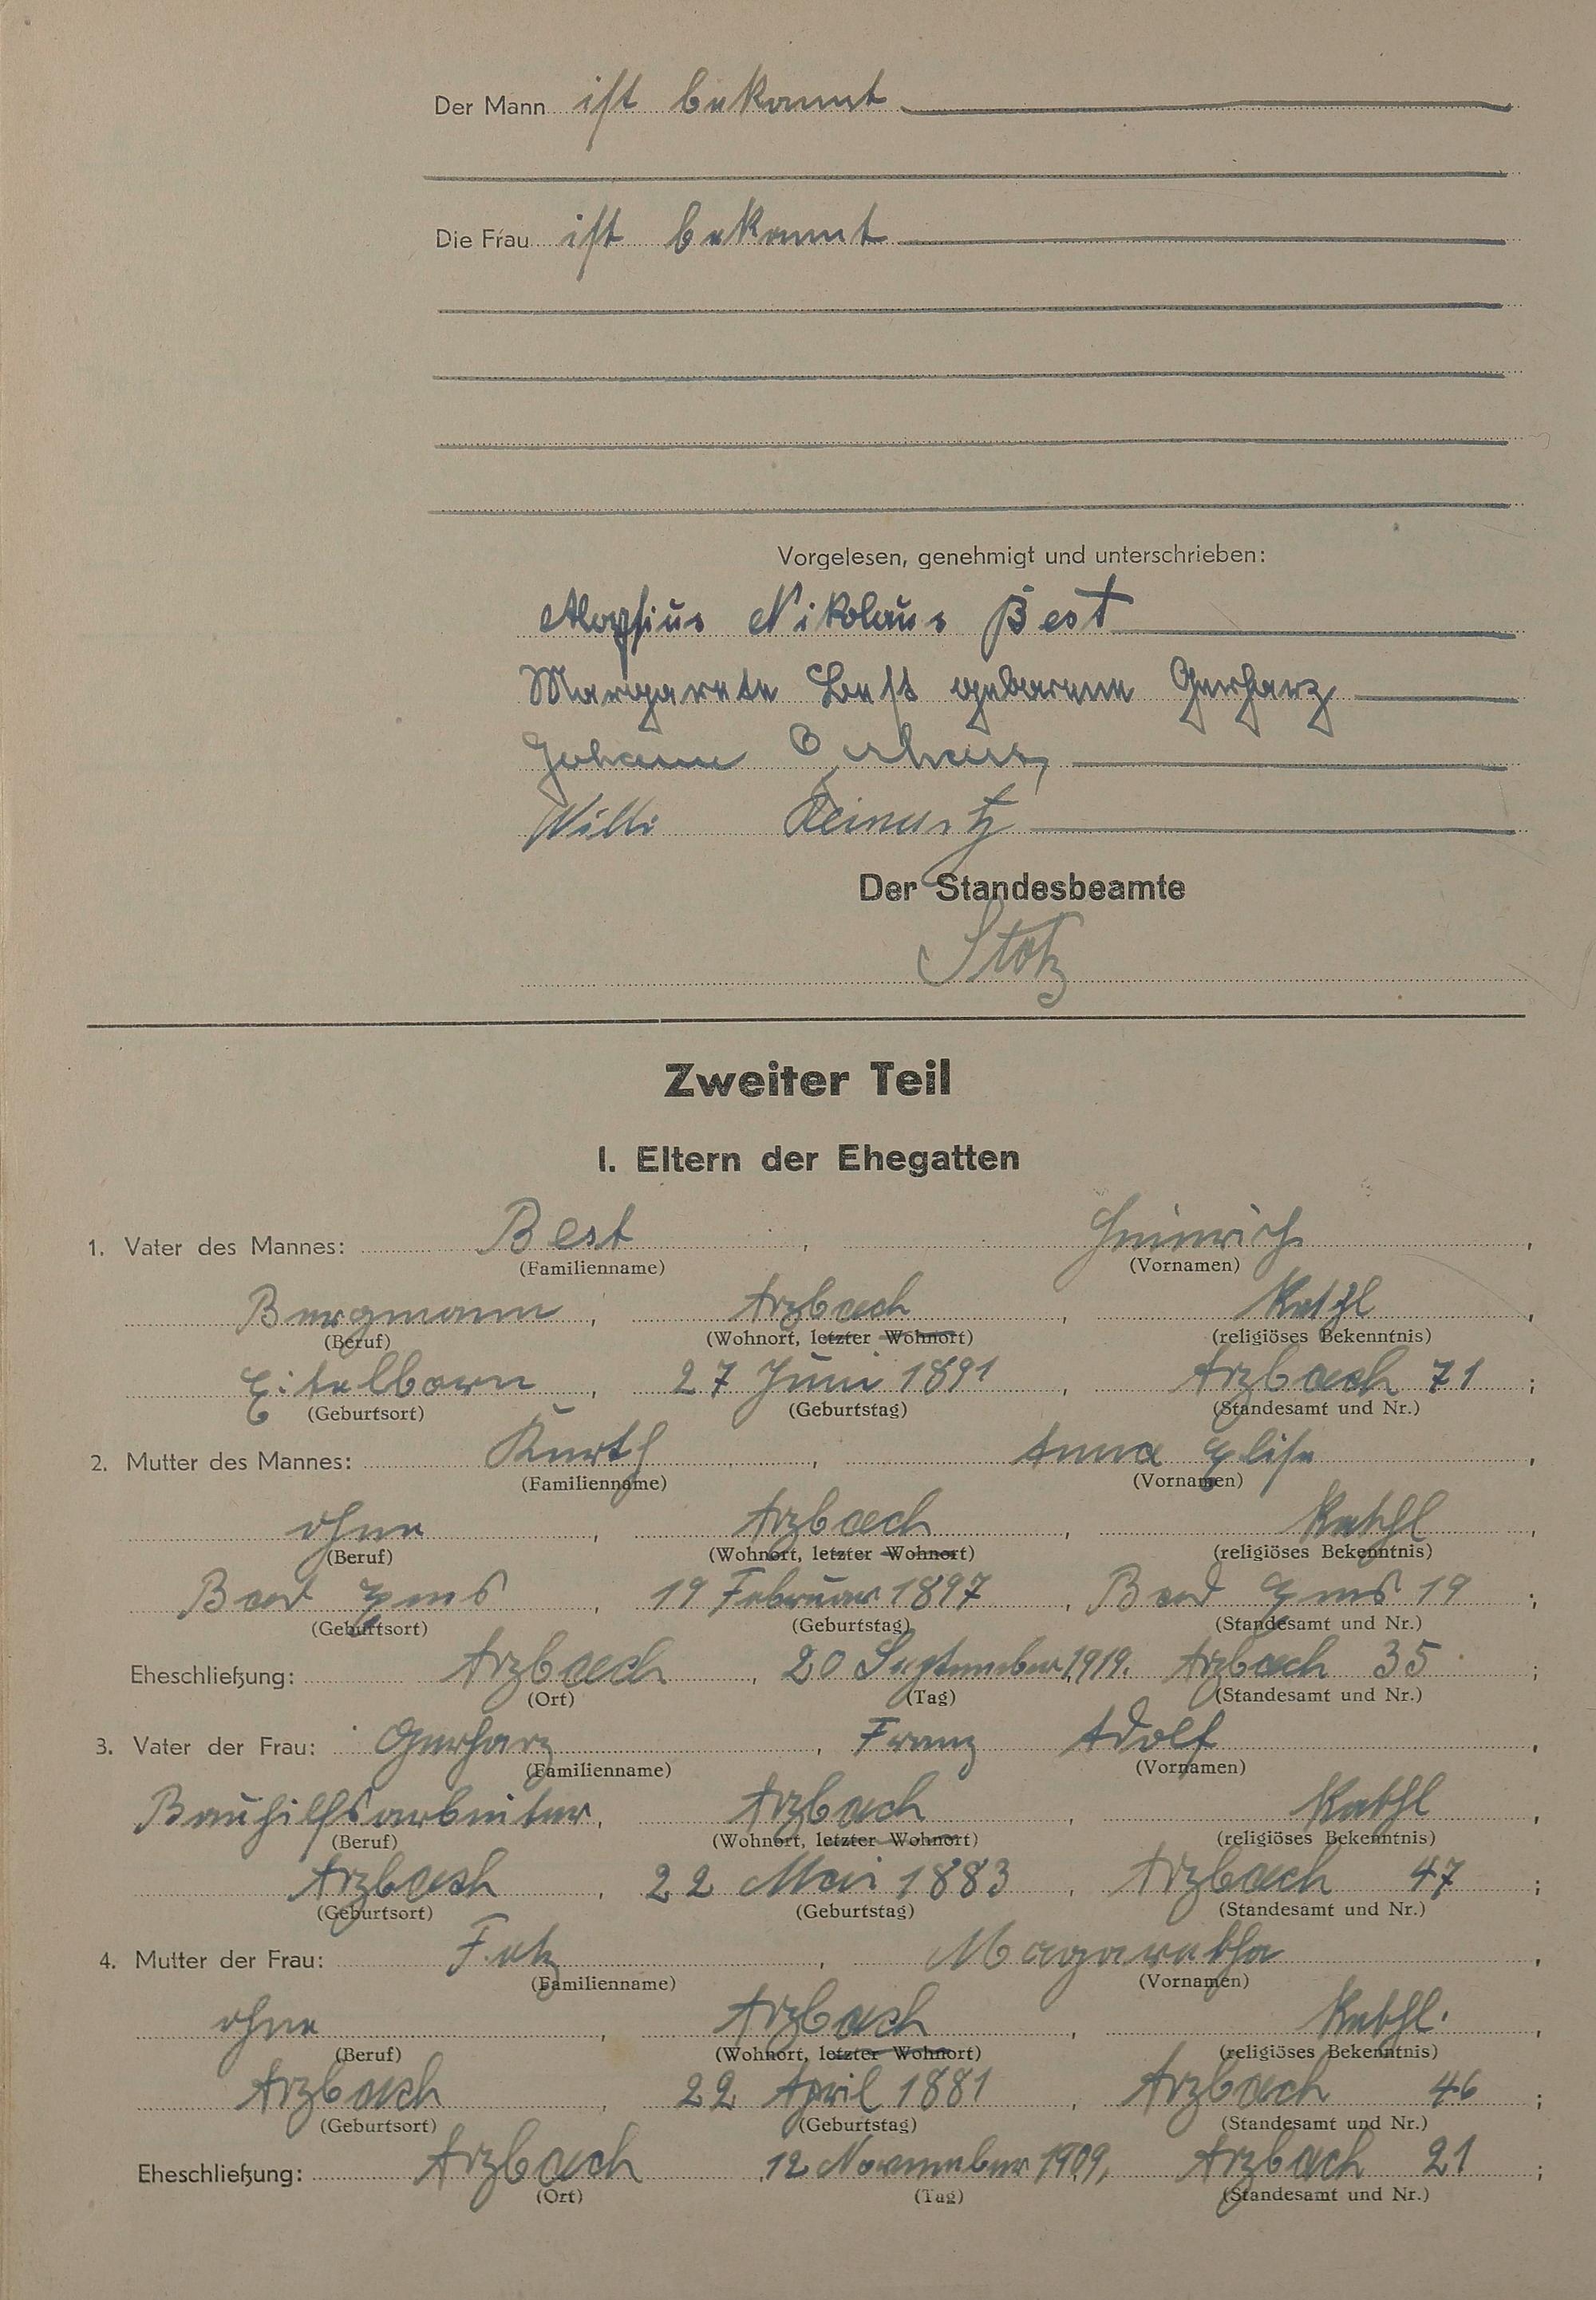 Der Mann ist bekannt
Die Frau ist bekannt
Vorgelesen, genehmigt und unterschrieben:
Aloysius Nikolaus Best
Margarete Best geborene Gerharz
Johann Gerharz
Willi
Der Standesbeamte
Stotz
Zweiter Teil
I. Eltern der Ehegatten
1. Vater des Mannes: Best, Heinrich,
(Familienname) (Vornamen)
Bergmann, Arzbach, Kathl,
(Beruf) (Wohnort, letzter Wohnort) (religiöses Bekenntnis)
Eitelborn, 27 Juni 1891, Arzbach 71;
(Geburtsort) (Geburtstag) (Standesamt und Nr.)
2. Mutter des Mannes: Kurth, Anna Elise,
(Familienname) (Vornamen)
ohne, Arzbach, Kathl,
(Beruf) (Wohnort, letzter Wohnort) (religiöses Bekenntnis)
Bad Ems, 19 Februar 1897, Bad Ems 19;
(Geburtsort) (Geburtstag) (Standesamt und Nr.)
Eheschließung: Arzbach, 20 September 1919. Arzbach 35;
(Ort) (Tag) (Standesamt und Nr.)
3. Vater der Frau: Gerharz, Franz Adolf,
(Familienname) (Vornamen)
Bauhilfsarbeiter, Arzbach, Kathl,
(Beruf) (Wohnort, letzter Wohnort) (religiöses Bekenntnis)
Arzbach, 22 Mai 1883, Arzbach 47;
(Geburtsort) (Geburtstag) (Standesamt und Nr.)
4. Mutter der Frau: Fetz, Magaretha,
(Familienname) (Vornamen)
ohne, Arzbach, Kathl.,
(Beruf) (Wohnort, letzter Wohnort) (religiöses Bekenntnis)
Arzbach, 22 April 1881, Arzbach 46;
(Geburtsort) (Geburtstag) (Standesamt und Nr.)
Eheschließung: Arzbach, 12 November 1909, Arzbach 21;
(Ort) (Tag) (Standesamt und Nr.)